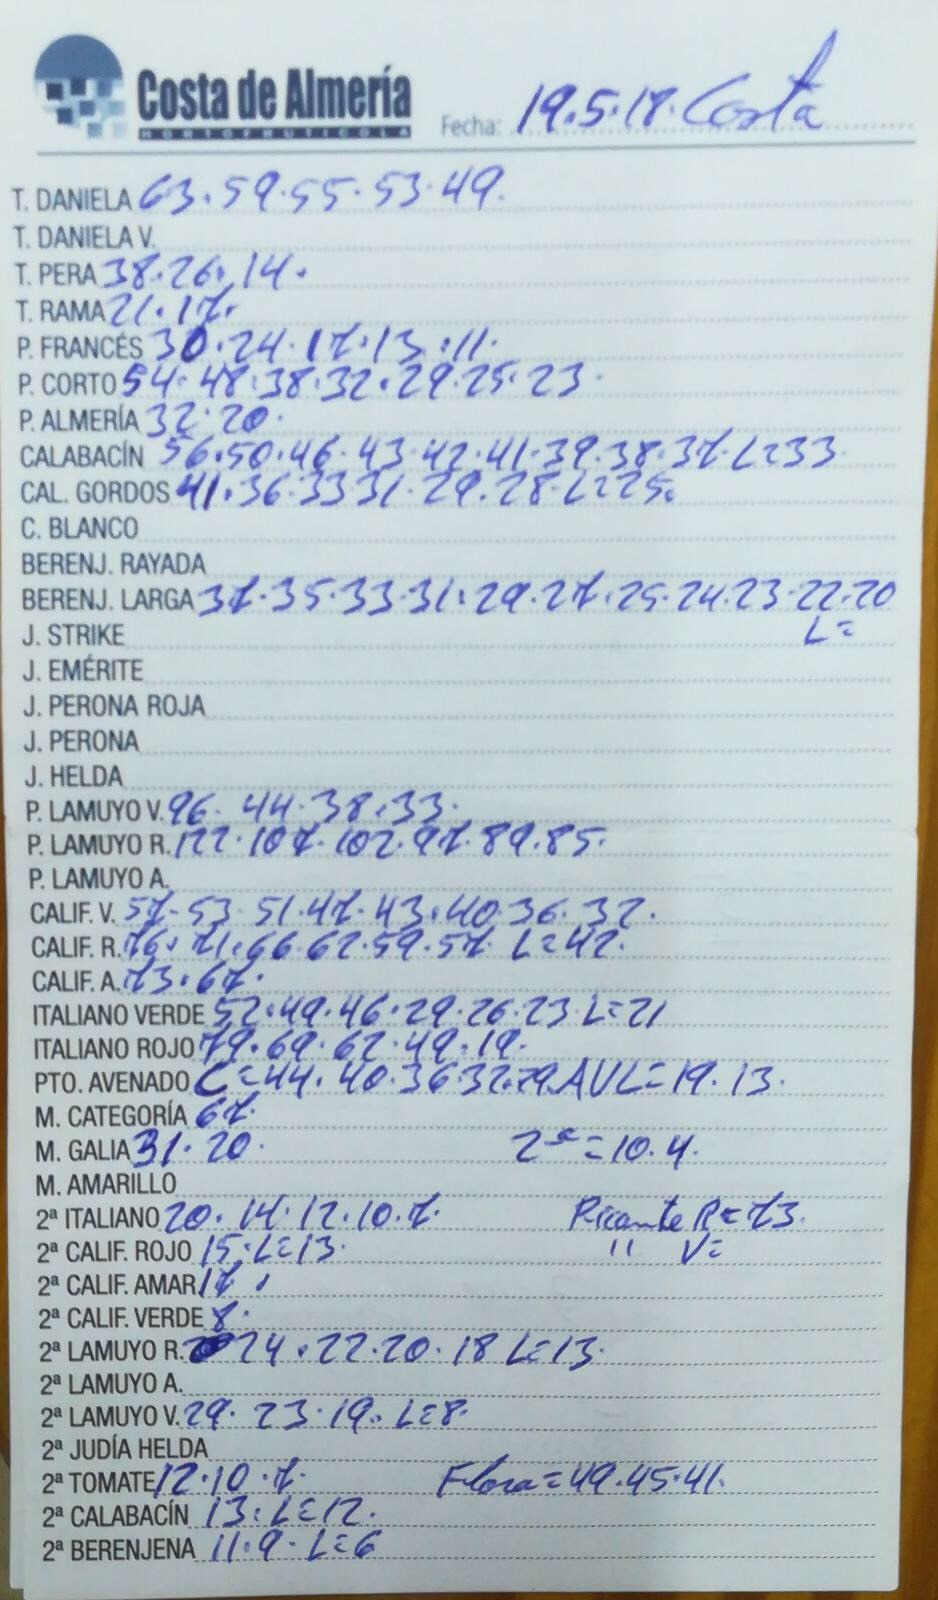 Costa de Almería
HORTOFRUTICOLA
Fecha: 19.5.18. Costa
T. DANIELA 63.59.55.53.49.
T. DANIELA V.
T. PERA 38.26.14.
T. RAMA 21.17.
P. FRANCÉS 30.24.17.13.11.
P. CORTO 54.48.38.32.29.25.23.
P. ALMERÍA 32.20.
CALABACÍN 56.50.46.43.42.41.39.38.37.L=33.
CAL. GORDOS 41.36.33.31.29.28.L=25.
C. BLANCO
BERENJ. RAYADA
BERENJ. LARGA 37.35.33.31.29.27.25.24.23.22.20
L=
J. STRIKE
J. EMÉRITE
J. PERONA ROJA
J. PERONA
J. HELDA
P. LAMUYO V. 96. 44.38.33.
P. LAMUYO R. 122.107.102.97.89.85.
P. LAMUYO A.
CALIF. V. 57.53.51.47.43.40.36.32.
CALIF. R. 76.71.66.62.59.57. L=42.
CALIF. A. 73.67.
ITALIANO VERDE 52.49.46.29.26.23.L=21
ITALIANO ROJO 79.69.62.49.19.
PTO. AVENADO C=44.40.36.32.29.AVL=19.13.
M. CATEGORÍA 67.
M. GALIA 31.20. 2ª=10.4.
M. AMARILLO
2ª ITALIANO 20.14.12.10.7. Picante R=73.
2ª CALIF. ROJO 15.L=13. " V=
2ª CALIF. AMAR 17.
2ª CALIF. VERDE 8.
2ª LAMUYO R. 24.22.20.18 L=13.
2ª LAMUYO A.
2ª LAMUYO V. 29.23.19.L=8.
2ª JUDÍA HELDA
2ª TOMATE 12.10.7. Flora=49.45.41.
2ª CALABACÍN 13.L=12.
2ª BERENJENA 11.9.L=6